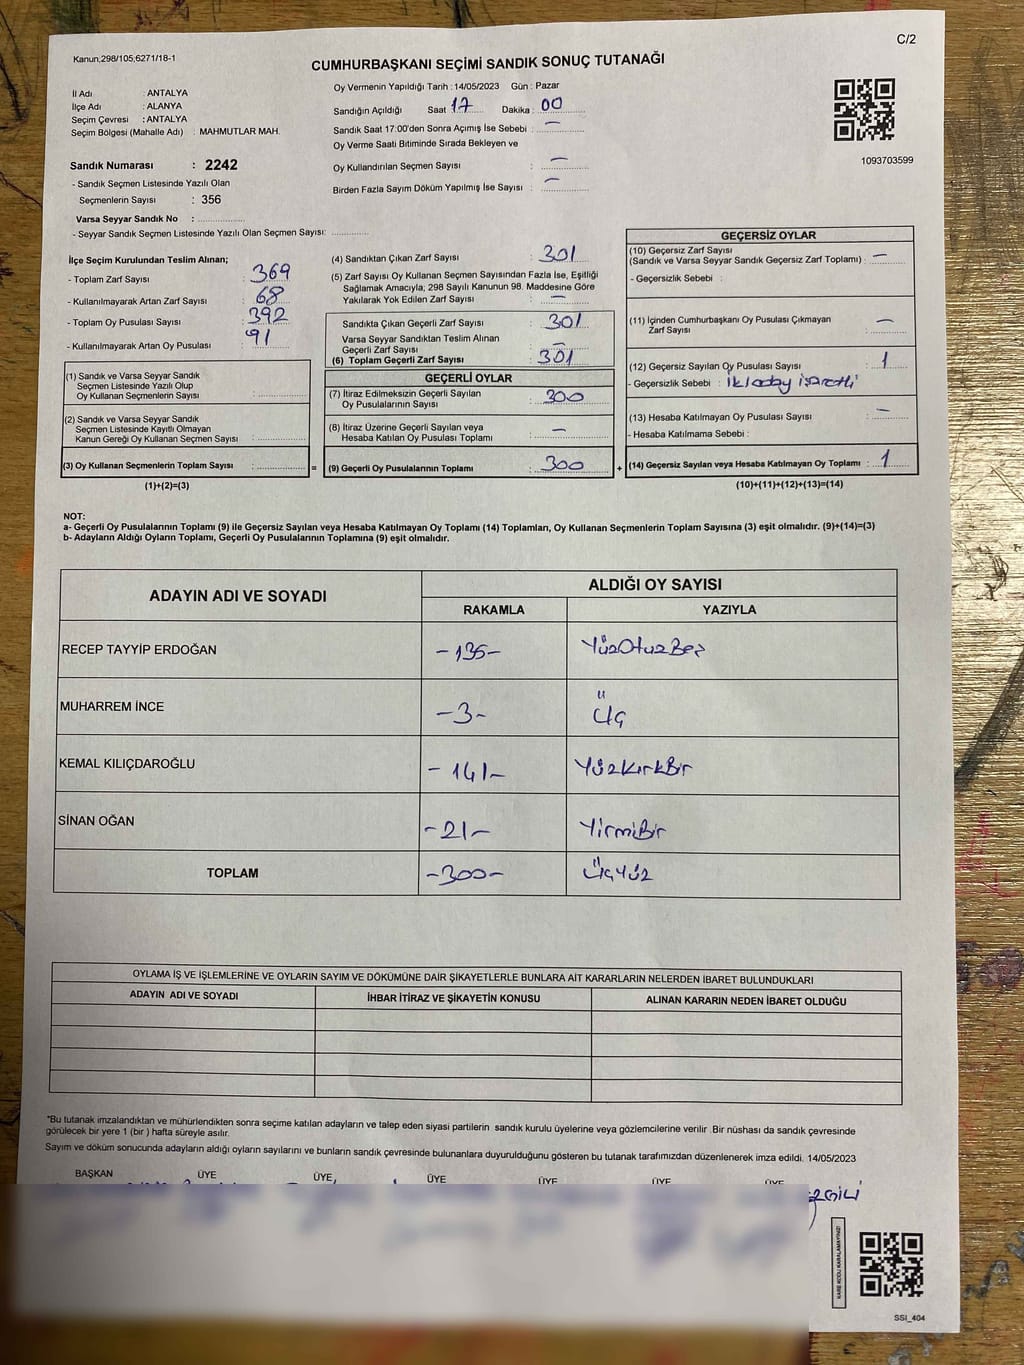 C/2
Kanun,298/105;6271/18-1
CUMHURBAŞKANI SEÇİMİ SANDIK SONUÇ TUTANAĞI
İl Adı : ANTALYA
İlçe Adı : ALANYA
Seçim Çevresi : ANTALYA
Seçim Bölgesi (Mahalle Adı) : MAHMUTLAR MAH.
Sandık Numarası : 2242
- Sandık Seçmen Listesinde Yazılı Olan
Seçmenlerin Sayısı : 356
Varsa Seyyar Sandık No :
- Seyyar Sandık Seçmen Listesinde Yazılı Olan Seçmen Sayısı:
Oy Vermenin Yapıldığı Tarih :14/05/2023 Gün : Pazar
Sandığın Açıldığı Saat 17 Dakika : 00
Sandık Saat 17:00'den Sonra Açımış İse Sebebi : —
Oy Verme Saati Bitiminde Sırada Bekleyen ve
Oy Kullandırılan Seçmen Sayısı : —
Birden Fazla Sayım Döküm Yapılmış İse Sayısı : —
1093703599
İlçe Seçim Kurulundan Teslim Alınan;
- Toplam Zarf Sayısı : 369
- Kullanılmayarak Artan Zarf Sayısı : 68
- Toplam Oy Pusulası Sayısı : 392
- Kullanılmayarak Artan Oy Pusulası : 91
(1) Sandık ve Varsa Seyyar Sandık
Seçmen Listesinde Yazılı Olup
Oy Kullanan Seçmenlerin Sayısı :
(2) Sandık ve Varsa Seyyar Sandık
Seçmen Listesinde Kayıtlı Olmayan
Kanun Gereği Oy Kullanan Seçmen Sayısı :
(3) Oy Kullanan Seçmenlerin Toplam Sayısı :
(1)+(2)=(3)
(4) Sandıktan Çıkan Zarf Sayısı : 301
(5) Zarf Sayısı Oy Kullanan Seçmen Sayısından Fazla İse, Eşitliği
Sağlamak Amacıyla; 298 Sayılı Kanunun 98. Maddesine Göre
Yakılarak Yok Edilen Zarf Sayısı : —
Sandıkta Çıkan Geçerli Zarf Sayısı : 301
Varsa Seyyar Sandıktan Teslim Alınan
Geçerli Zarf Sayısı : —
(6) Toplam Geçerli Zarf Sayısı : 301
GEÇERLİ OYLAR
(7) İtiraz Edilmeksizin Geçerli Sayılan
Oy Pusulalarının Sayısı : 300
(8) İtiraz Üzerine Geçerli Sayılan veya
Hesaba Katılan Oy Pusulası Toplamı : —
= (9) Geçerli Oy Pusulalarının Toplamı : 300
GEÇERSİZ OYLAR
(10) Geçersiz Zarf Sayısı
(Sandık ve Varsa Seyyar Sandık Geçersiz Zarf Toplamı) : —
- Geçersizlik Sebebi :
(11) İçinden Cumhurbaşkanı Oy Pusulası Çıkmayan
Zarf Sayısı : —
(12) Geçersiz Sayılan Oy Pusulası Sayısı : 1
- Geçersizlik Sebebi : iki aday işaretli
(13) Hesaba Katılmayan Oy Pusulası Sayısı : —
- Hesaba Katılmama Sebebi :
+ (14) Geçersiz Sayılan veya Hesaba Katılmayan Oy Toplamı : 1
(10)+(11)+(12)+(13)=(14)
NOT:
a- Geçerli Oy Pusulalarının Toplamı (9) ile Geçersiz Sayılan veya Hesaba Katılmayan Oy Toplamı (14) Toplamları, Oy Kullanan Seçmenlerin Toplam Sayısına (3) eşit olmalıdır. (9)+(14)=(3)
b- Adayların Aldığı Oyların Toplamı, Geçerli Oy Pusulalarının Toplamına (9) eşit olmalıdır.
ADAYIN ADI VE SOYADI
ALDIĞI OY SAYISI
RAKAMLA YAZIYLA
RECEP TAYYİP ERDOĞAN -135- YüzOtuzBeş
MUHARREM İNCE -3- Üç
KEMAL KILIÇDAROĞLU -141- YüzKırkBir
SİNAN OĞAN -21- YirmiBir
TOPLAM -300- ÜçYüz
OYLAMA İŞ VE İŞLEMLERİNE VE OYLARIN SAYIM VE DÖKÜMÜNE DAİR ŞİKAYETLERLE BUNLARA AİT KARARLARIN NELERDEN İBARET BULUNDUKLARI
ADAYIN ADI VE SOYADI İHBAR İTİRAZ VE ŞİKAYETİN KONUSU ALINAN KARARIN NEDEN İBARET OLDUĞU
*Bu tutanak imzalandıktan ve mühürlendikten sonra seçime katılan adayların ve talep eden siyasi partilerin sandık kurulu üyelerine veya gözlemcilerine verilir .Bir nüshası da sandık çevresinde
görülecek bir yere 1 (bir ) hafta süreyle asılır.
Sayım ve döküm sonucunda adayların aldığı oyların sayılarını ve bunların sandık çevresinde bulunanlara duyurulduğunu gösteren bu tutanak tarafımızdan düzenlenerek imza edildi. 14/05/2023
BAŞKAN ÜYE ÜYE ÜYE ÜYE ÜYE ÜYE
KARE KODU KARALAMAYINIZ!
SSI_404